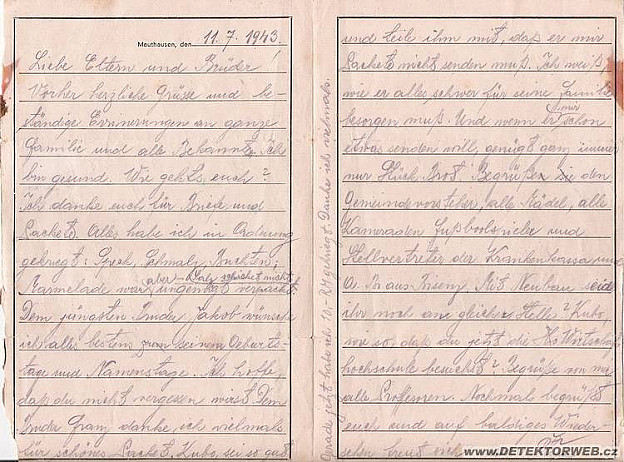 Mauthausen, den 11. 7. 1943.
Liebe Eltern und Brüder!
Vorher herzliche Grüsse und be-
ständige Erinnerungen an ganze
Familie und alle Bekannte. Ich
bin gesund. Wie gehts euch?
Ich danke euch für Briefe und
Packet. Alles habe ich in Ordnung
gekriegt: Speck, Schmalz,
aber nicht
Marmelade war verpackt.
Dem jüngsten Bruder Jakob wünsche
ich alles bestens zum seinem Geburts-
tage und Namenstage. Ich hoffe,
daß du mich vergessen wirst. Dem
Bruder Franz danke ich vielmals
für schönes Packet. Kubo, sei so gut
und teile ihm mit, daß er mir
Packet nicht senden muß. Ich weiß,
wie er alles schwer für seine Familie
besorgen muß. Und wenn er mir schon
etwas senden will, genügt ganz immer
nur Stück Brot. Begrüße den
Gemeindevorsteher, alle Mädel, alle
Kameraden Fußbolspieler und
Stellvertreter der Krankenkassa und
Mit Neubau seid
ihr noch an gleicher Stelle? Kubo,
wie so, daß du jetzt die Wirtschaft
hochschule besuchst? Begrüße von mir
alle Professoren. Nochmal begrüßt
euch und auf baldiges Wieder-
sehen freut sich
Gerade jetzt habe ich gekriegt. Danke ich vielmals.
www.DETEKTORWEB.cz